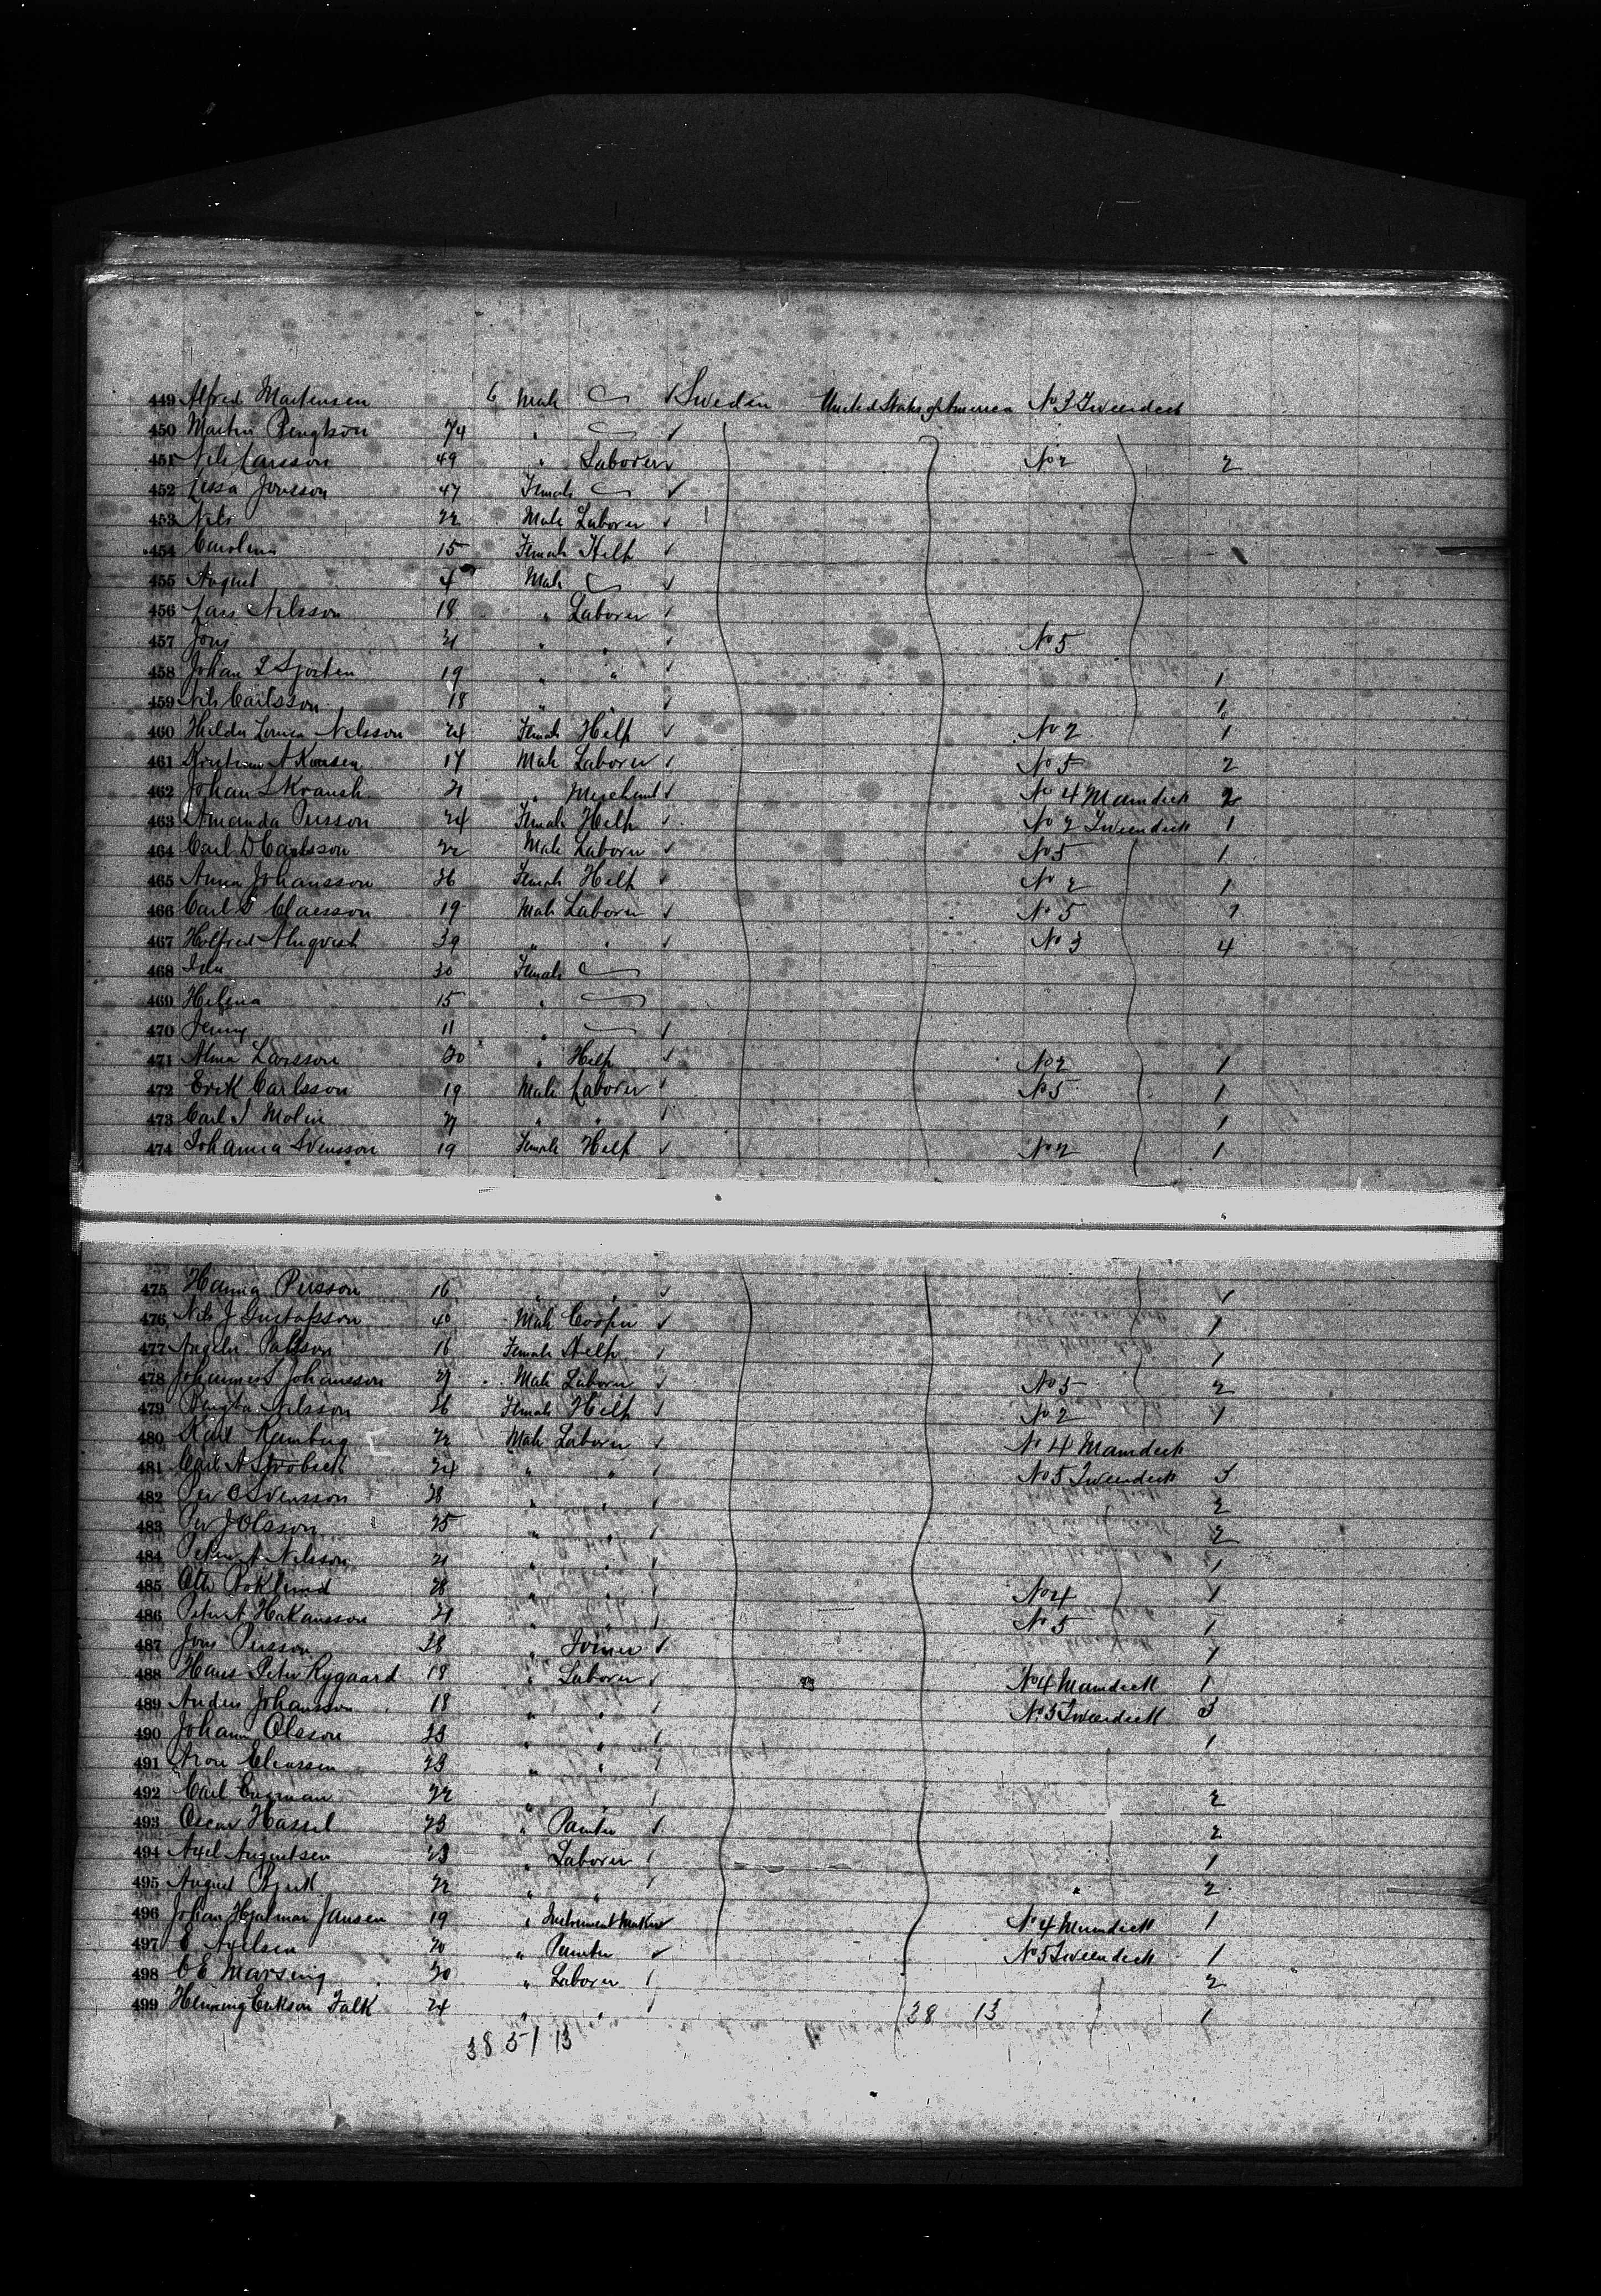 449 Alfred Martensen 6 Male Sweden United States of America No 3 Tweendeck
450 Martin Bengtson 74 "
451 Nils Larsson 49 " Laborer No 2 2
452 Kissa Jonsson 47 Female
453 Nils 22 Male Laborer
454 Carolina 15 Female Help
455 August 4 Male
456 Lars Nilsson 18 " Laborer
457 Jöns 21 " " No 5
458 Johan 19 " " 1
459 Nils Carlsson 18 " " 1
460 Hilda Lovisa Nelsson 24 Female Help No 2 1
461 17 Male Laborer No 5 2
462 Johan 21 " Merchant No 4 Maindeck 2
463 Amanda Persson 24 Female Help No 2 Tweendeck 1
464 Carl D Carlsson 22 Male Laborer No 5 1
465 Anna Johansson 26 Female Help No 2 1
466 Carl Claesson 19 Male Laborer No 5 1
467 Holfred Almqvist 39 " " No 3 4
468 Ida 30 Female
469 Helena 15 "
470 Jenny 11 "
471 Alma Larsson 20 " Help No 2 1
472 Erik Carlsson 19 Male Laborer No 5 1
473 Carl J Molin " " 1
474 Johanna Svensson 19 Female Help No 2 1
475 Hanna Persson 16 " "
476 Nils J Gustafsson 40 Male Cooper 1
477 16 Female Help 1
478 Johannes S Johansson 21 Male Laborer No 5 2
479 Bengta Nilsson 26 Female Help No 2 1
480 Karl Ramberg 22 Male Laborer No 4 Maindeck
481 Carl A Strobeck 24 " " No 5 Tweendeck 3
482 Per O Svensson 28 " " 2
483 Per J Olsson 25 " " 2
484 Peter A Nilsson 21 " " 1
485 Otto Boklund 28 " " No 4 1
486 Peter A Hakansson 21 " " No 5 1
487 Jöns Persson 38 " Joiner 1
488 Hans Peter Rygaard 18 " Laborer No 4 Maindeck 1
489 Anders Johansson 18 " " No 5 Tweendeck 3
490 Johann Olsson 23 " " 1
491 Aron Eliassen 23 " "
492 Carl Engman 22 " " 2
493 Oscar Hassel 23 " Painter 2
494 Axel Augustsen 23 " Laborer 1
495 August Bjerk 22 " " " 2
496 Johan Hjalmar Jansen 19 " Instrument maker No 4 Maindeck 1
497 E Axelsen 20 " Painter No 5 Tweendeck 1
498 C E Marsing 30 " Laborer 2
499 Henning Erikson Falk 24 " " 38 13 1
38 5/ 13